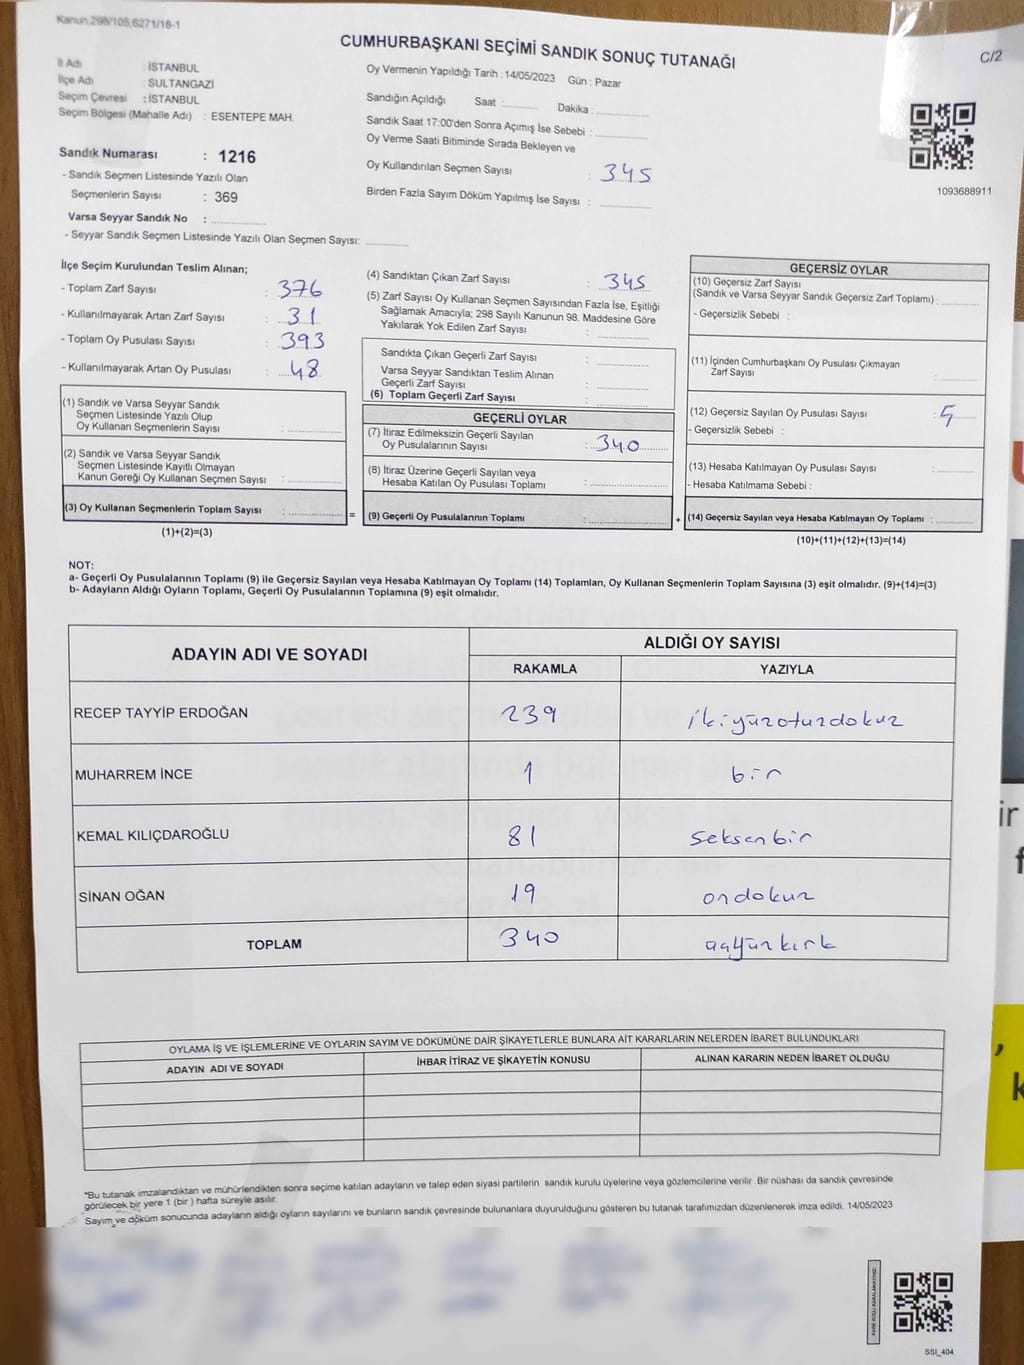 Kanun,298/105,6271/18-1
CUMHURBAŞKANI SEÇİMİ SANDIK SONUÇ TUTANAĞI
C/2
İl Adı : İSTANBUL
İlçe Adı : SULTANGAZİ
Seçim Çevresi : İSTANBUL
Seçim Bölgesi (Mahalle Adı) : ESENTEPE MAH.
Sandık Numarası : 1216
- Sandık Seçmen Listesinde Yazılı Olan
Seçmenlerin Sayısı : 369
Varsa Seyyar Sandık No :
- Seyyar Sandık Seçmen Listesinde Yazılı Olan Seçmen Sayısı:
Oy Vermenin Yapıldığı Tarih : 14/05/2023 Gün : Pazar
Sandığın Açıldığı Saat : Dakika :
Sandık Saat 17:00'den Sonra Açımış İse Sebebi :
Oy Verme Saati Bitiminde Sırada Bekleyen ve
Oy Kullandırılan Seçmen Sayısı : 345
Birden Fazla Sayım Döküm Yapılmış İse Sayısı :
1093688911
İlçe Seçim Kurulundan Teslim Alınan;
- Toplam Zarf Sayısı : 376
- Kullanılmayarak Artan Zarf Sayısı : 31
- Toplam Oy Pusulası Sayısı : 393
- Kullanılmayarak Artan Oy Pusulası : 48
(1) Sandık ve Varsa Seyyar Sandık
Seçmen Listesinde Yazılı Olup
Oy Kullanan Seçmenlerin Sayısı :
(2) Sandık ve Varsa Seyyar Sandık
Seçmen Listesinde Kayıtlı Olmayan
Kanun Gereği Oy Kullanan Seçmen Sayısı :
(3) Oy Kullanan Seçmenlerin Toplam Sayısı : =
(1)+(2)=(3)
(4) Sandıktan Çıkan Zarf Sayısı : 345
(5) Zarf Sayısı Oy Kullanan Seçmen Sayısından Fazla İse, Eşitliği
Sağlamak Amacıyla; 298 Sayılı Kanunun 98. Maddesine Göre
Yakılarak Yok Edilen Zarf Sayısı :
Sandıkta Çıkan Geçerli Zarf Sayısı :
Varsa Seyyar Sandıktan Teslim Alınan
Geçerli Zarf Sayısı :
(6) Toplam Geçerli Zarf Sayısı :
GEÇERLİ OYLAR
(7) İtiraz Edilmeksizin Geçerli Sayılan
Oy Pusulalarının Sayısı : 340
(8) İtiraz Üzerine Geçerli Sayılan veya
Hesaba Katılan Oy Pusulası Toplamı :
(9) Geçerli Oy Pusulalarının Toplamı : +
GEÇERSİZ OYLAR
(10) Geçersiz Zarf Sayısı
(Sandık ve Varsa Seyyar Sandık Geçersiz Zarf Toplamı) :
- Geçersizlik Sebebi :
(11) İçinden Cumhurbaşkanı Oy Pusulası Çıkmayan
Zarf Sayısı :
(12) Geçersiz Sayılan Oy Pusulası Sayısı : 5
- Geçersizlik Sebebi :
(13) Hesaba Katılmayan Oy Pusulası Sayısı :
- Hesaba Katılmama Sebebi :
(14) Geçersiz Sayılan veya Hesaba Katılmayan Oy Toplamı :
(10)+(11)+(12)+(13)=(14)
NOT:
a- Geçerli Oy Pusulalarının Toplamı (9) ile Geçersiz Sayılan veya Hesaba Katılmayan Oy Toplamı (14) Toplamları, Oy Kullanan Seçmenlerin Toplam Sayısına (3) eşit olmalıdır. (9)+(14)=(3)
b- Adayların Aldığı Oyların Toplamı, Geçerli Oy Pusulalarının Toplamına (9) eşit olmalıdır.
ADAYIN ADI VE SOYADI ALDIĞI OY SAYISI
RAKAMLA YAZIYLA
RECEP TAYYİP ERDOĞAN 239 ikiyüzotuzdokuz
MUHARREM İNCE 1 bir
KEMAL KILIÇDAROĞLU 81 seksenbir
SİNAN OĞAN 19 ondokuz
TOPLAM 340 üçyüzkırk
OYLAMA İŞ VE İŞLEMLERİNE VE OYLARIN SAYIM VE DÖKÜMÜNE DAİR ŞİKAYETLERLE BUNLARA AİT KARARLARIN NELERDEN İBARET BULUNDUKLARI
ADAYIN ADI VE SOYADI İHBAR İTİRAZ VE ŞİKAYETİN KONUSU ALINAN KARARIN NEDEN İBARET OLDUĞU
*Bu tutanak imzalandıktan ve mühürlendikten sonra seçime katılan adayların ve talep eden siyasi partilerin sandık kurulu üyelerine veya gözlemcilerine verilir. Bir nüshası da sandık çevresinde
görülecek bir yere 1 (bir ) hafta süreyle asılır.
Sayım ve döküm sonucunda adayların aldığı oyların sayılarını ve bunların sandık çevresinde bulunanlara duyurulduğunu gösteren bu tutanak tarafımızdan düzenlenerek imza edildi. 14/05/2023
SSI_404